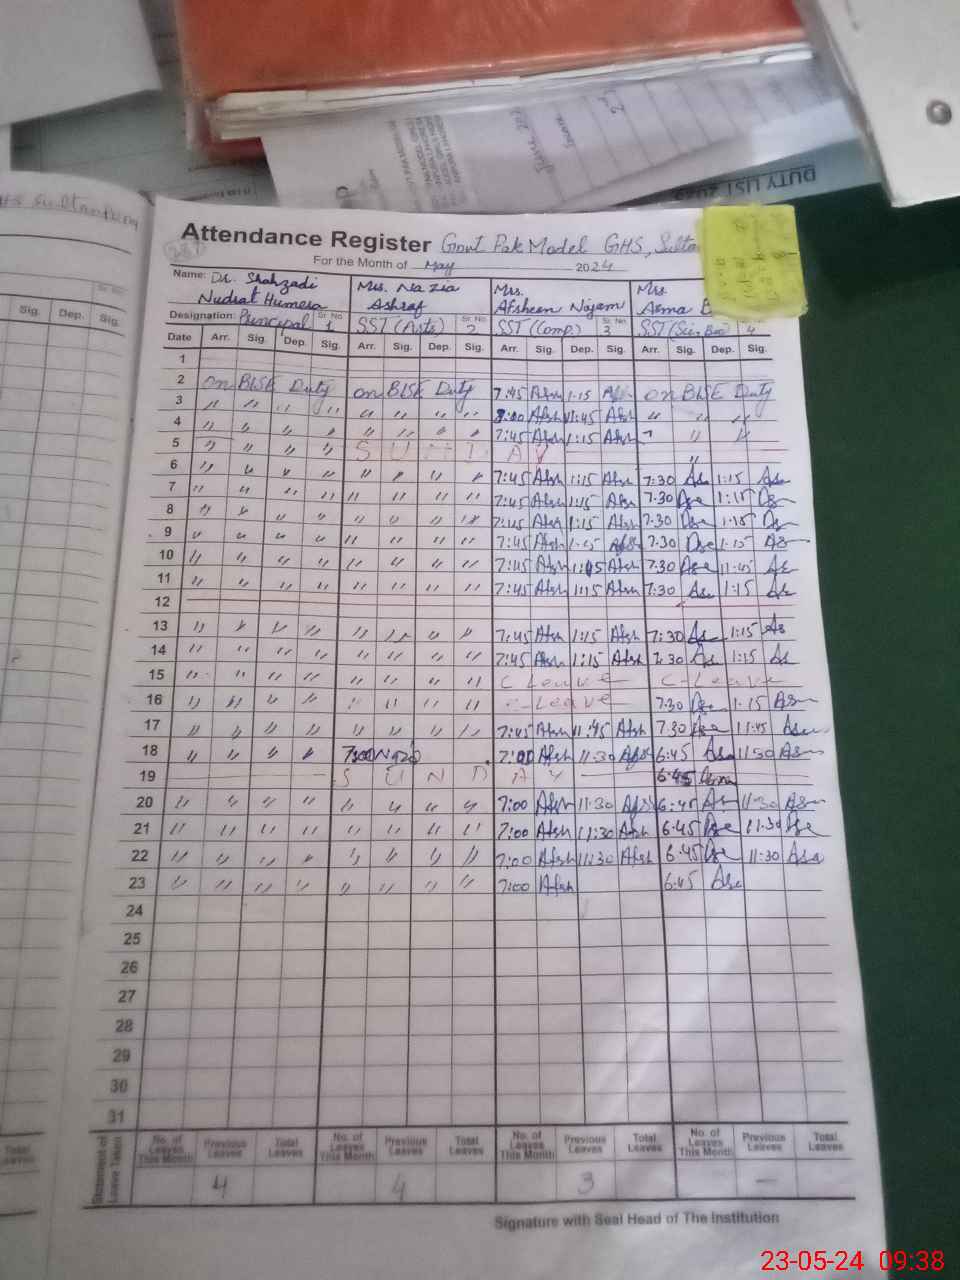 DUTY LIST
GHS Sultanpura
Attendance Register Govt Pak Model GHS, Sulta
For the Month of May 2024
Name: Dr. Shahzadi Nudrat Humera Mrs. Nazia Ashraf Mrs. Afsheen Najam Mrs. Asma B
Designation: Principal Sr. No. 1 SST (Arts) Sr. No. 2 SST (Comp.) Sr. No. 3 SST (Sci. Bio) 4
Sig. Dep. Sig. Date Arr. Sig. Dep. Sig. Arr. Sig. Dep. Sig. Arr. Sig. Dep. Sig. Arr. Sig. Dep. Sig.
1
2 on BISE Duty on BISE Duty 7:45 Afsh 1:15 Afsh on BISE Duty
3 〃 〃 〃 〃 〃 〃 〃 〃 8:00 Afsh 11:45 Afsh 〃 〃 〃
4 〃 〃 〃 〃 〃 〃 〃 〃 7:45 Afsh 1:15 Afsh 〃 〃 〃
5 〃 〃 〃 〃 S U N D A Y
6 〃 〃 〃 〃 〃 〃 〃 〃 7:45 Afsh 1:15 Afsh 7:30 1:15
7 〃 〃 〃 〃 〃 〃 〃 〃 7:45 Afsh 1:15 Afsh 7:30 1:15
8 〃 〃 〃 〃 〃 〃 〃 〃 7:45 Afsh 1:15 Afsh 7:30 1:15
9 〃 〃 〃 〃 〃 〃 〃 〃 7:45 Afsh 1:15 Afsh 7:30 1:15
10 〃 〃 〃 〃 〃 〃 〃 〃 7:45 Afsh 11:45 Afsh 7:30 11:45
11 〃 〃 〃 〃 〃 〃 〃 〃 7:45 Afsh 1:15 Afsh 7:30 1:15
12
13 〃 〃 〃 〃 〃 〃 〃 〃 7:45 Afsh 1:15 Afsh 7:30 1:15
14 〃 〃 〃 〃 〃 〃 〃 〃 7:45 Afsh 1:15 Afsh 7:30 1:15
15 〃 〃 〃 〃 〃 〃 〃 〃 C Leave C-Leave
16 〃 〃 〃 〃 〃 〃 〃 〃 C-Leave 7:30 1:15
17 〃 〃 〃 〃 〃 〃 〃 〃 7:45 Afsh 11:45 Afsh 7:30 11:45
18 〃 〃 〃 〃 7:00 Nazia 7:00 Afsh 11:30 Afsh 6:45 11:30
19 S U N D A Y 6:45 Asma
20 〃 〃 〃 〃 〃 〃 〃 〃 7:00 Afsh 11:30 Afsh 6:45 11:30
21 〃 〃 〃 〃 〃 〃 〃 〃 7:00 Afsh 11:30 Afsh 6:45 11:30
22 〃 〃 〃 〃 〃 〃 〃 〃 7:00 Afsh 11:30 Afsh 6:45 11:30
23 〃 〃 〃 〃 〃 〃 〃 〃 7:00 Afsh 6:45
24
25
26
27
28
29
30
31
Statement of Leave Taken No. of Leaves This Month Previous Leaves Total Leaves No. of Leaves This Month Previous Leaves Total Leaves No. of Leaves This Month Previous Leaves Total Leaves No. of Leaves This Month Previous Leaves Total Leaves
4 4 3 —
Signature with Seal Head of The Institution
23-05-24 09:38